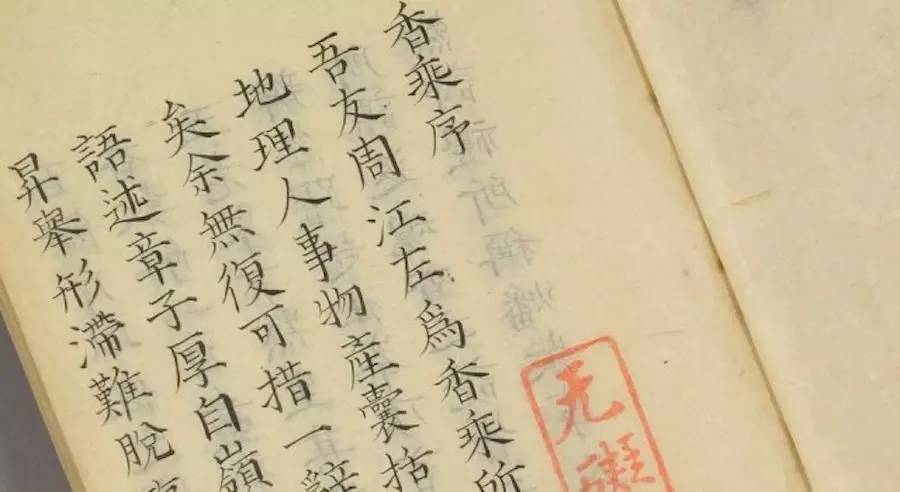 香乘序
吾友周江左爲香乘所
地理人事物產囊括
矣余無復可措一辭
語述章子厚自嶺
昇舉形滯難脫
无礙